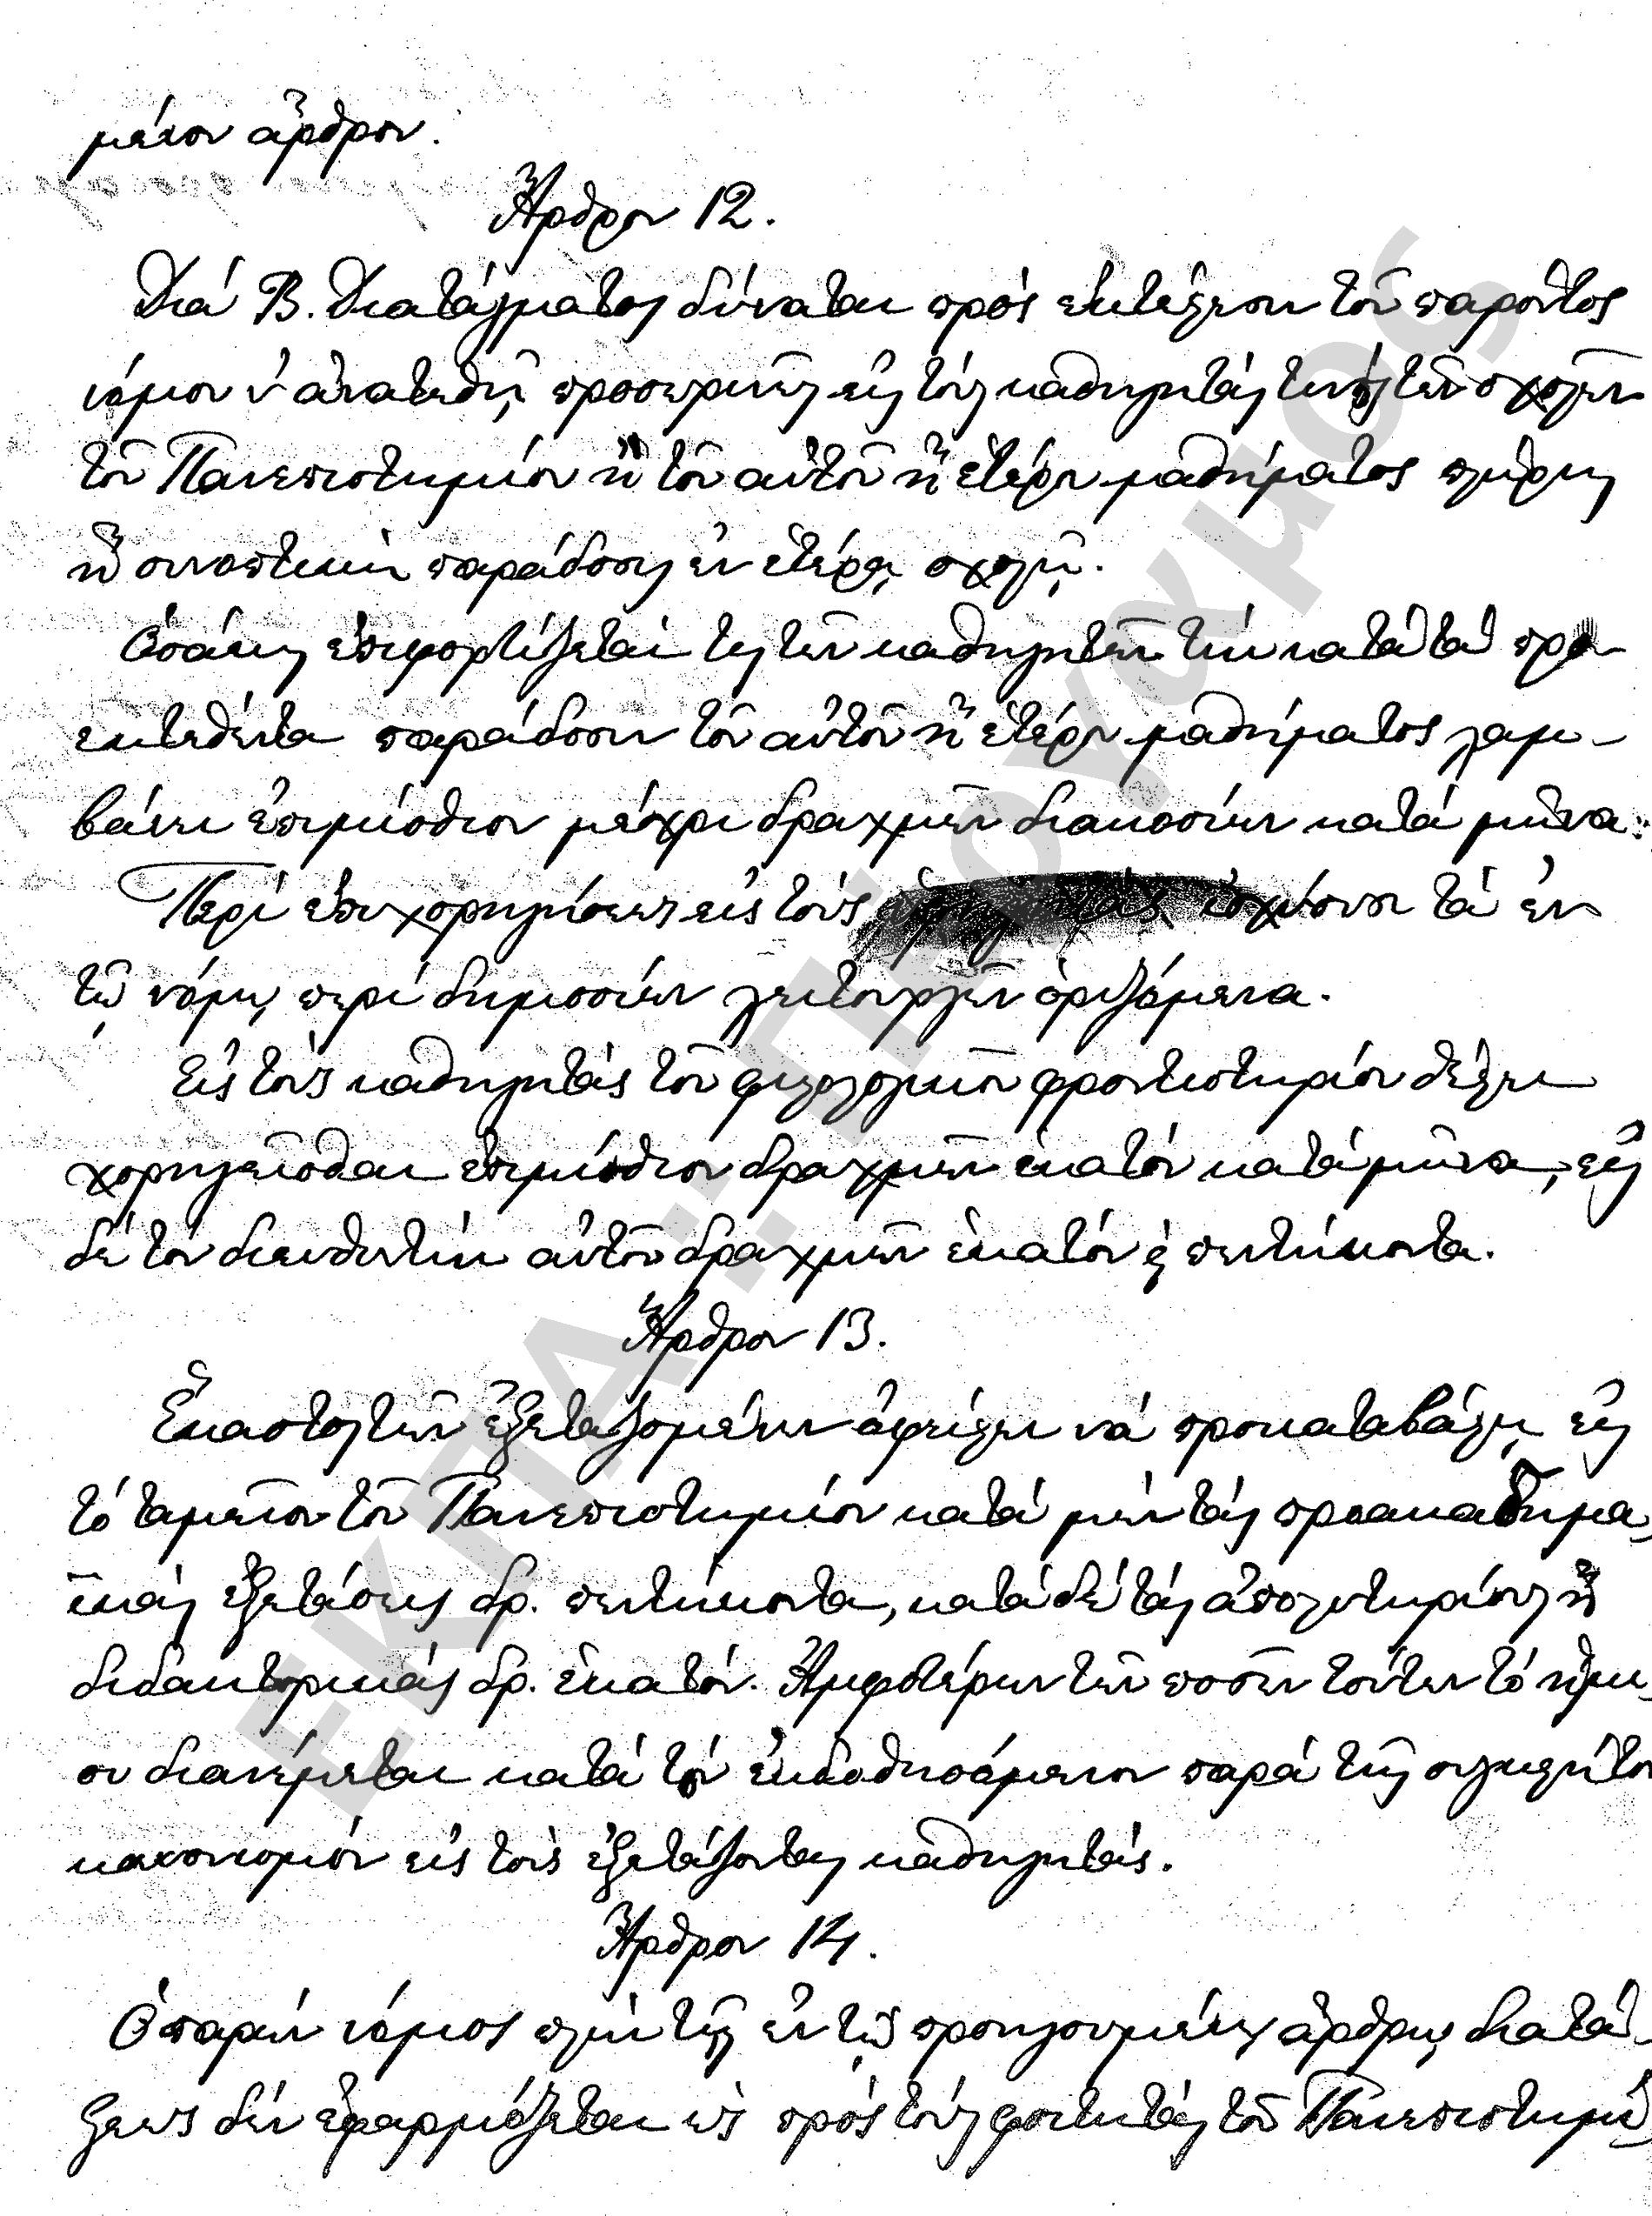 μένον ἄρθρον.
Ἄρθρον 12.
Διά Β. Διατάγματος δύναται πρός ἐκτέλεσιν τοῦ παρόντος
νόμου ν' ἀνατεθῇ προσωρινῶς εἰς τούς καθηγητάς τινός τῶν σχολῶν
τοῦ Πανεπιστημίου ἡ τοῦ αὐτοῦ ἤ ἑτέρου μαθήματος πλήρης
ἤ συνοπτική παράδοσις ἐν ἑτέρᾳ σχολῇ.
Ὁσάκις ἐπιφορτίζεταί τις τῶν καθηγητῶν τήν κατά τά προ-
εκτεθέντα παράδοσιν τοῦ αὐτοῦ ἤ ἑτέρου μαθήματος λαμ-
βάνει ἐπιμίσθιον μέχρι δραχμῶν διακοσίων κατά μῆνα.
Περί ἐπιχορηγήσεως εἰς τούς ἰσχύουσι τά ἐν
τῷ νόμῳ περί δημοσίων λειτουργῶν ὁριζόμενα.
Εἰς τούς καθηγητάς τοῦ φιλολογικοῦ φροντιστηρίου θέλει
χορηγεῖσθαι ἐπιμίσθιον δραχμῶν ἑκατόν κατά μῆνα, εἰς
δέ τόν διευθυντήν αὐτοῦ δραχμῶν ἑκατόν ϗ πεντήκοντα.
Ἄρθρον 13.
Ἕκαστος τῶν ἐξεταζομένων ὀφείλει νά προκαταβάλῃ εἰς
τό ταμεῖον τοῦ Πανεπιστημίου κατά μέν τάς προακαδημα-
ϊκάς ἐξετάσεις δρ. πεντήκοντα, κατά δέ τάς ἀπολυτηρίους ἤ
διδακτορικάς δρ. ἑκατόν. Ἀμφοτέρων τῶν ποσῶν τούτων τό ἥμι-
συ διανέμεται κατά τόν ἐκδοθησόμενον παρά τῆς συγκλήτου
κανονισμόν εἰς τούς ἐξετάζοντας καθηγητάς.
Ἄρθρον 14.
Ὁ παρών νόμος πλήν τῆς ἐν τῷ προηγουμένῳ ἄρθρῳ διατά-
ξεως δέν ἐφαρμόζεται ὡς πρός τούς φοιτητάς τοῦ Πανεπιστημί-
ΕΚΠΑ::Πέργαμος